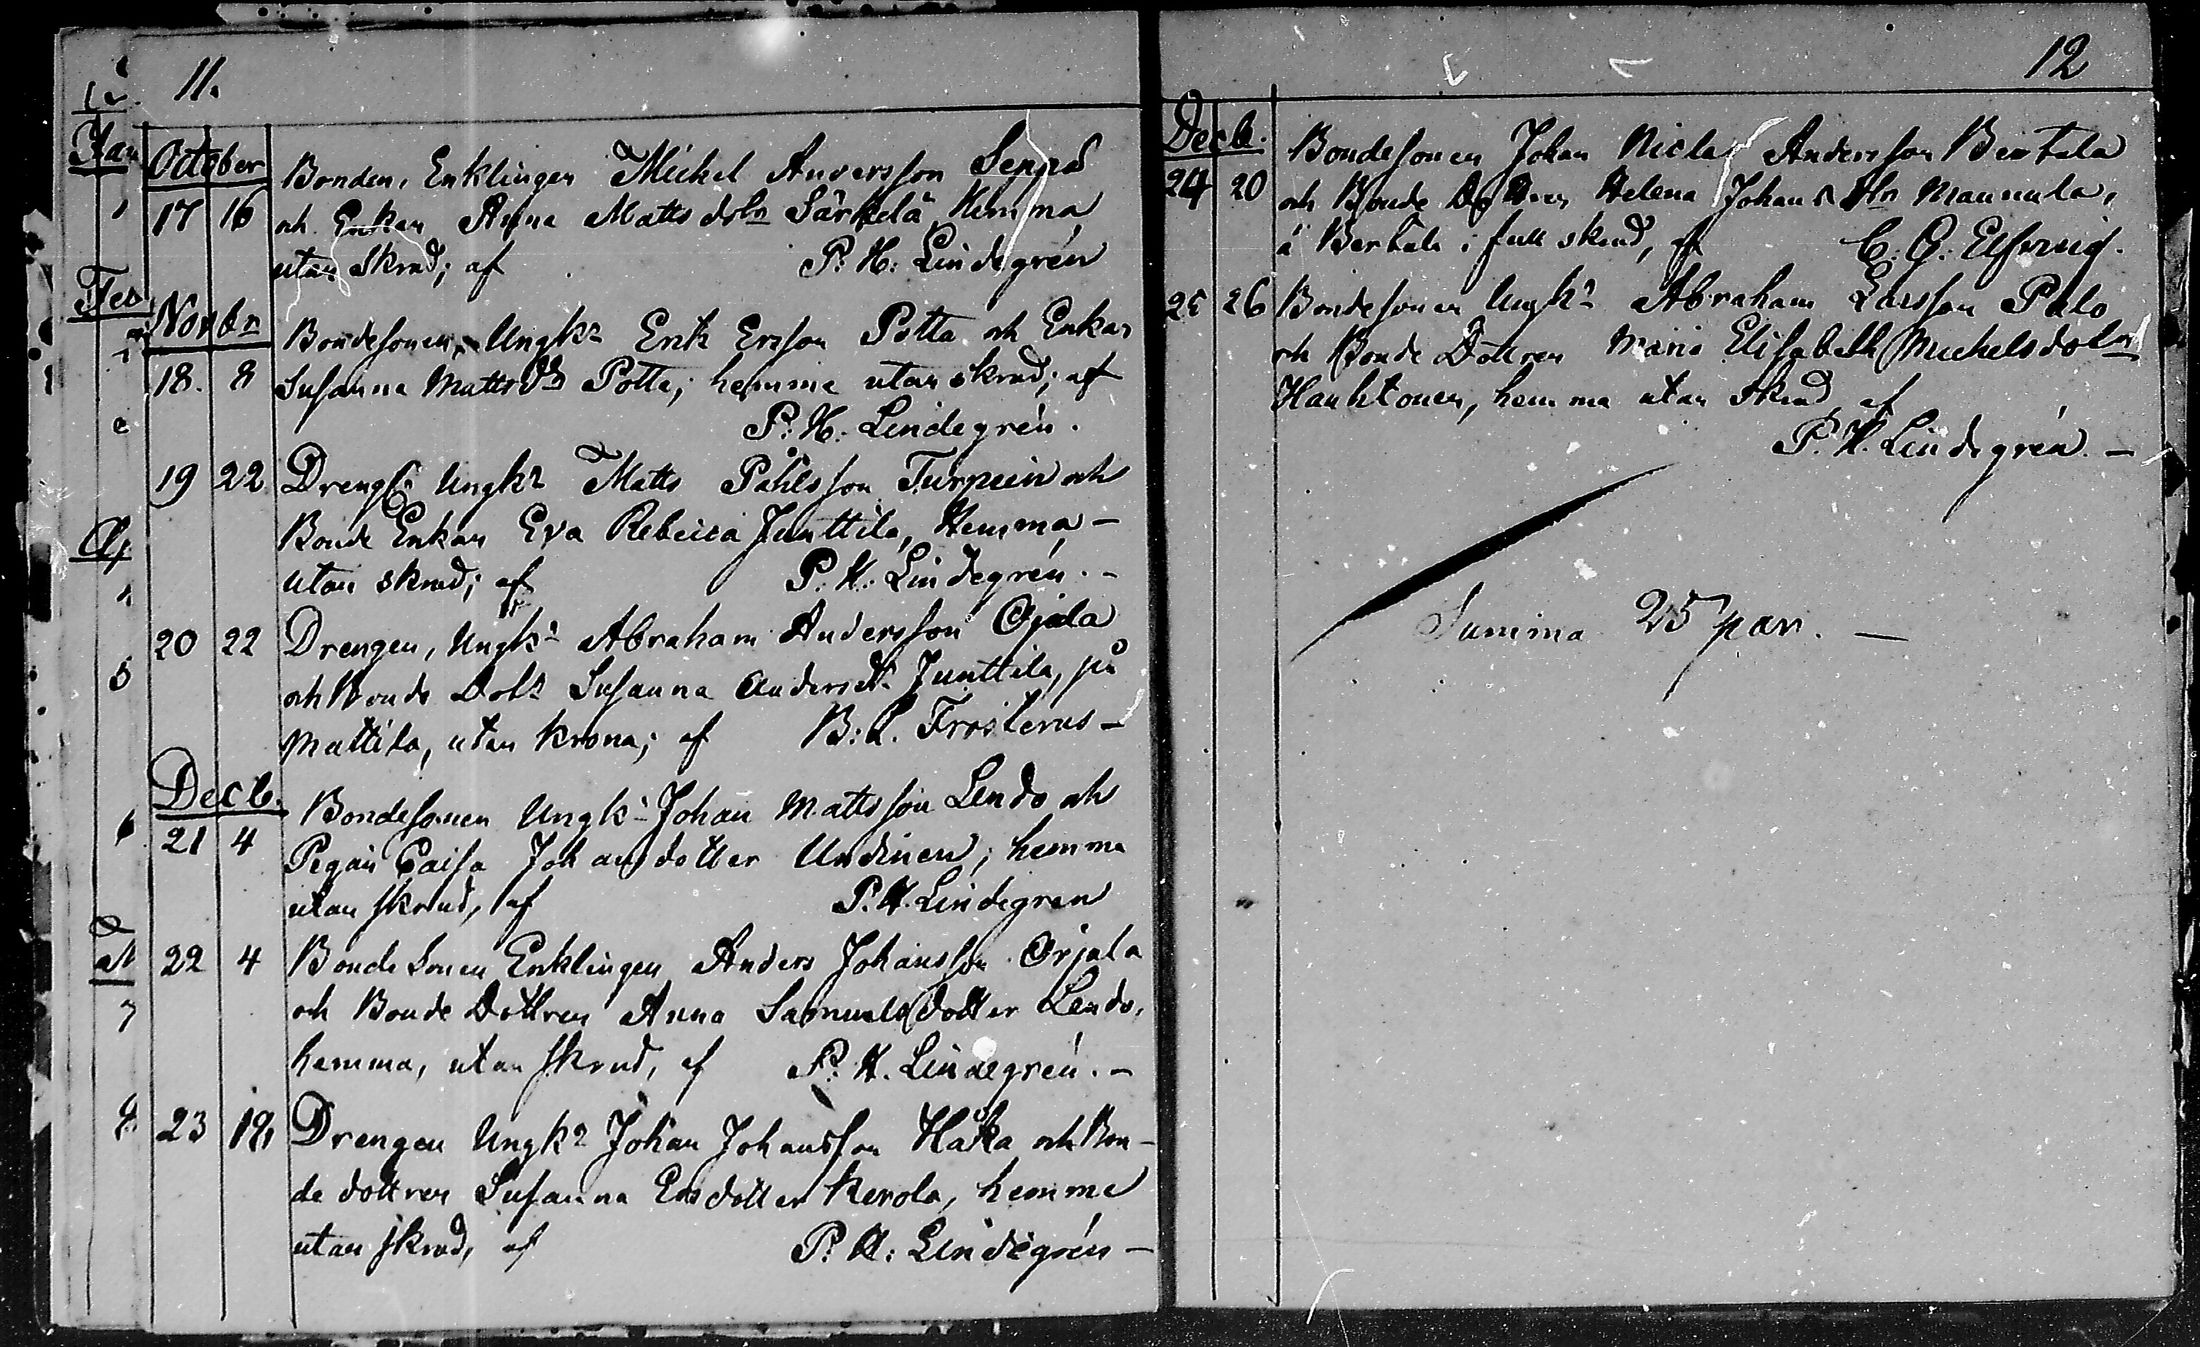 11.
October
17 16 Bonden, Enklingen Michel Andersson Seppä
och Enkan Anna Matts dotr Särkelä Hemma
utan Skrud; af P: H: Lindegrén
Novbr
18. 8 Bondesonen, Ungkn Erik Ersson Potta och Enkan
Susanna Mattsdr Potta; hemma utan skrud; af
P: H: Lindegrén.
19 22 Dreng Ungkn Matts Påhlsson Turpein och
Bonde Enkan Eva Rebecca Junttila, Hemma –
utan skrud; af P: H: Lindegrén. –
20 22 Drengen, Ungkn Abraham Andersson Ojala
och Bonde Dotr Susanna Andersdr Junttila, på
Mattila, utan krona; af B: L. Frosterus –
Decb.
21 4 Bondesonen Ungkn Johan Mattsson Lendo och
Pegan Caisa Johansdotter Undinen; hemma
utan skrud, af P. H. Lindegren
22 4 Bonde Sonen Enklingen Anders Johansson Orjala
och Bonde Dottren Anna Samuelsdotter Lendo,
hemma, utan skrud, af P: H. Lindegrén. –
23 18 Drengen Ungkn Johan Johansson Haka och Bon-
de dottren Susanna Ersdotter Kerola, hemma
utan skrud, af P: H: Lindegrén –
12
Decb.
24 20 Bondesonen Johan Niclas Andersson Bertala
och Bonde Dottren Helena Johans dtr Mannula,
å Bertala i full skrud, af C. G. Elfving.
25 26 Bondesonen Ungkn Abraham Larsson Palo
och Bonde Dottren Maria Elisabeth Michelsdotr
Hauhtonen, hemma utan Skrud af
P. H. Lindegrén. –
Summa 25 par. –